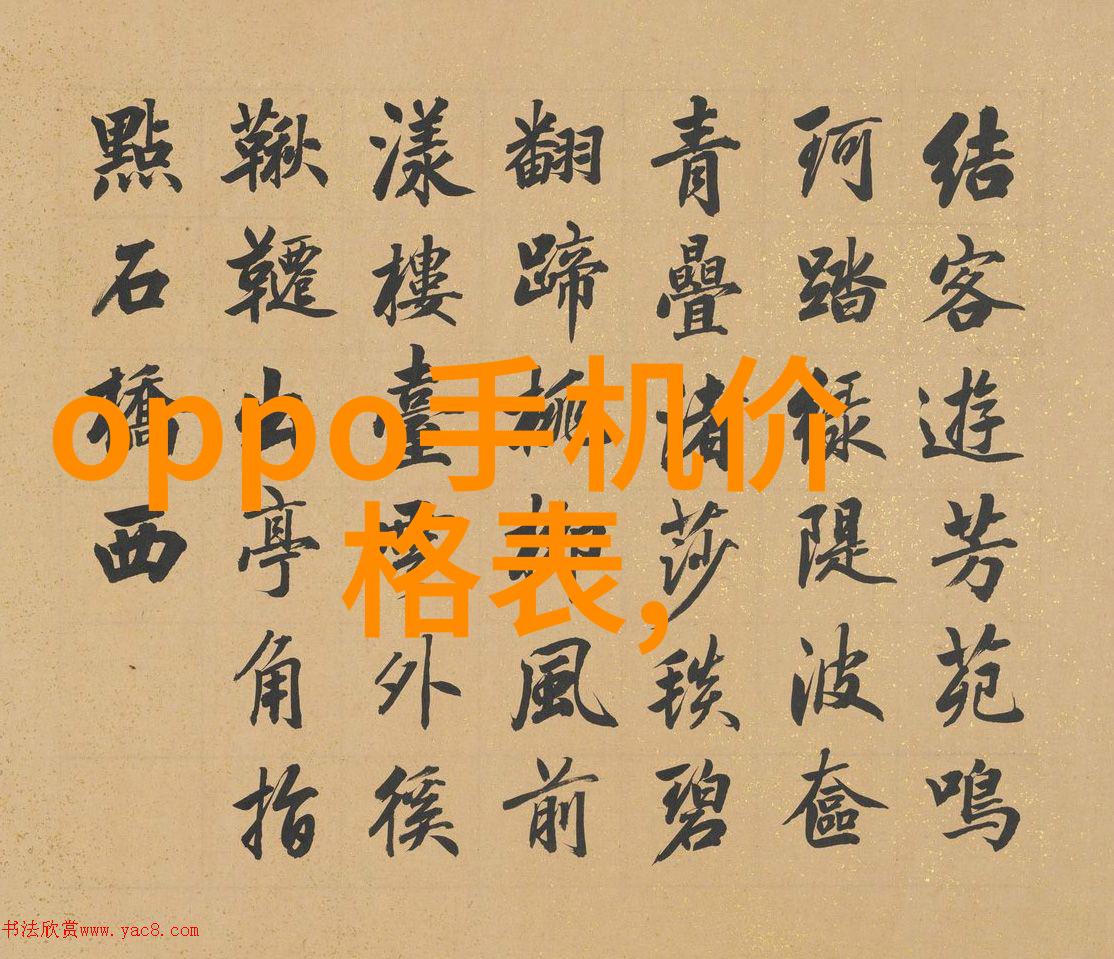 結客遊芳苑鳴
珂踏隄波奩
青疊渚莎毯碧
翻蹄風前
漾樓臺外徯
鞦韆亭角指
點石橋西
oppo手机价
格表,
书法欣赏www.yac8.com